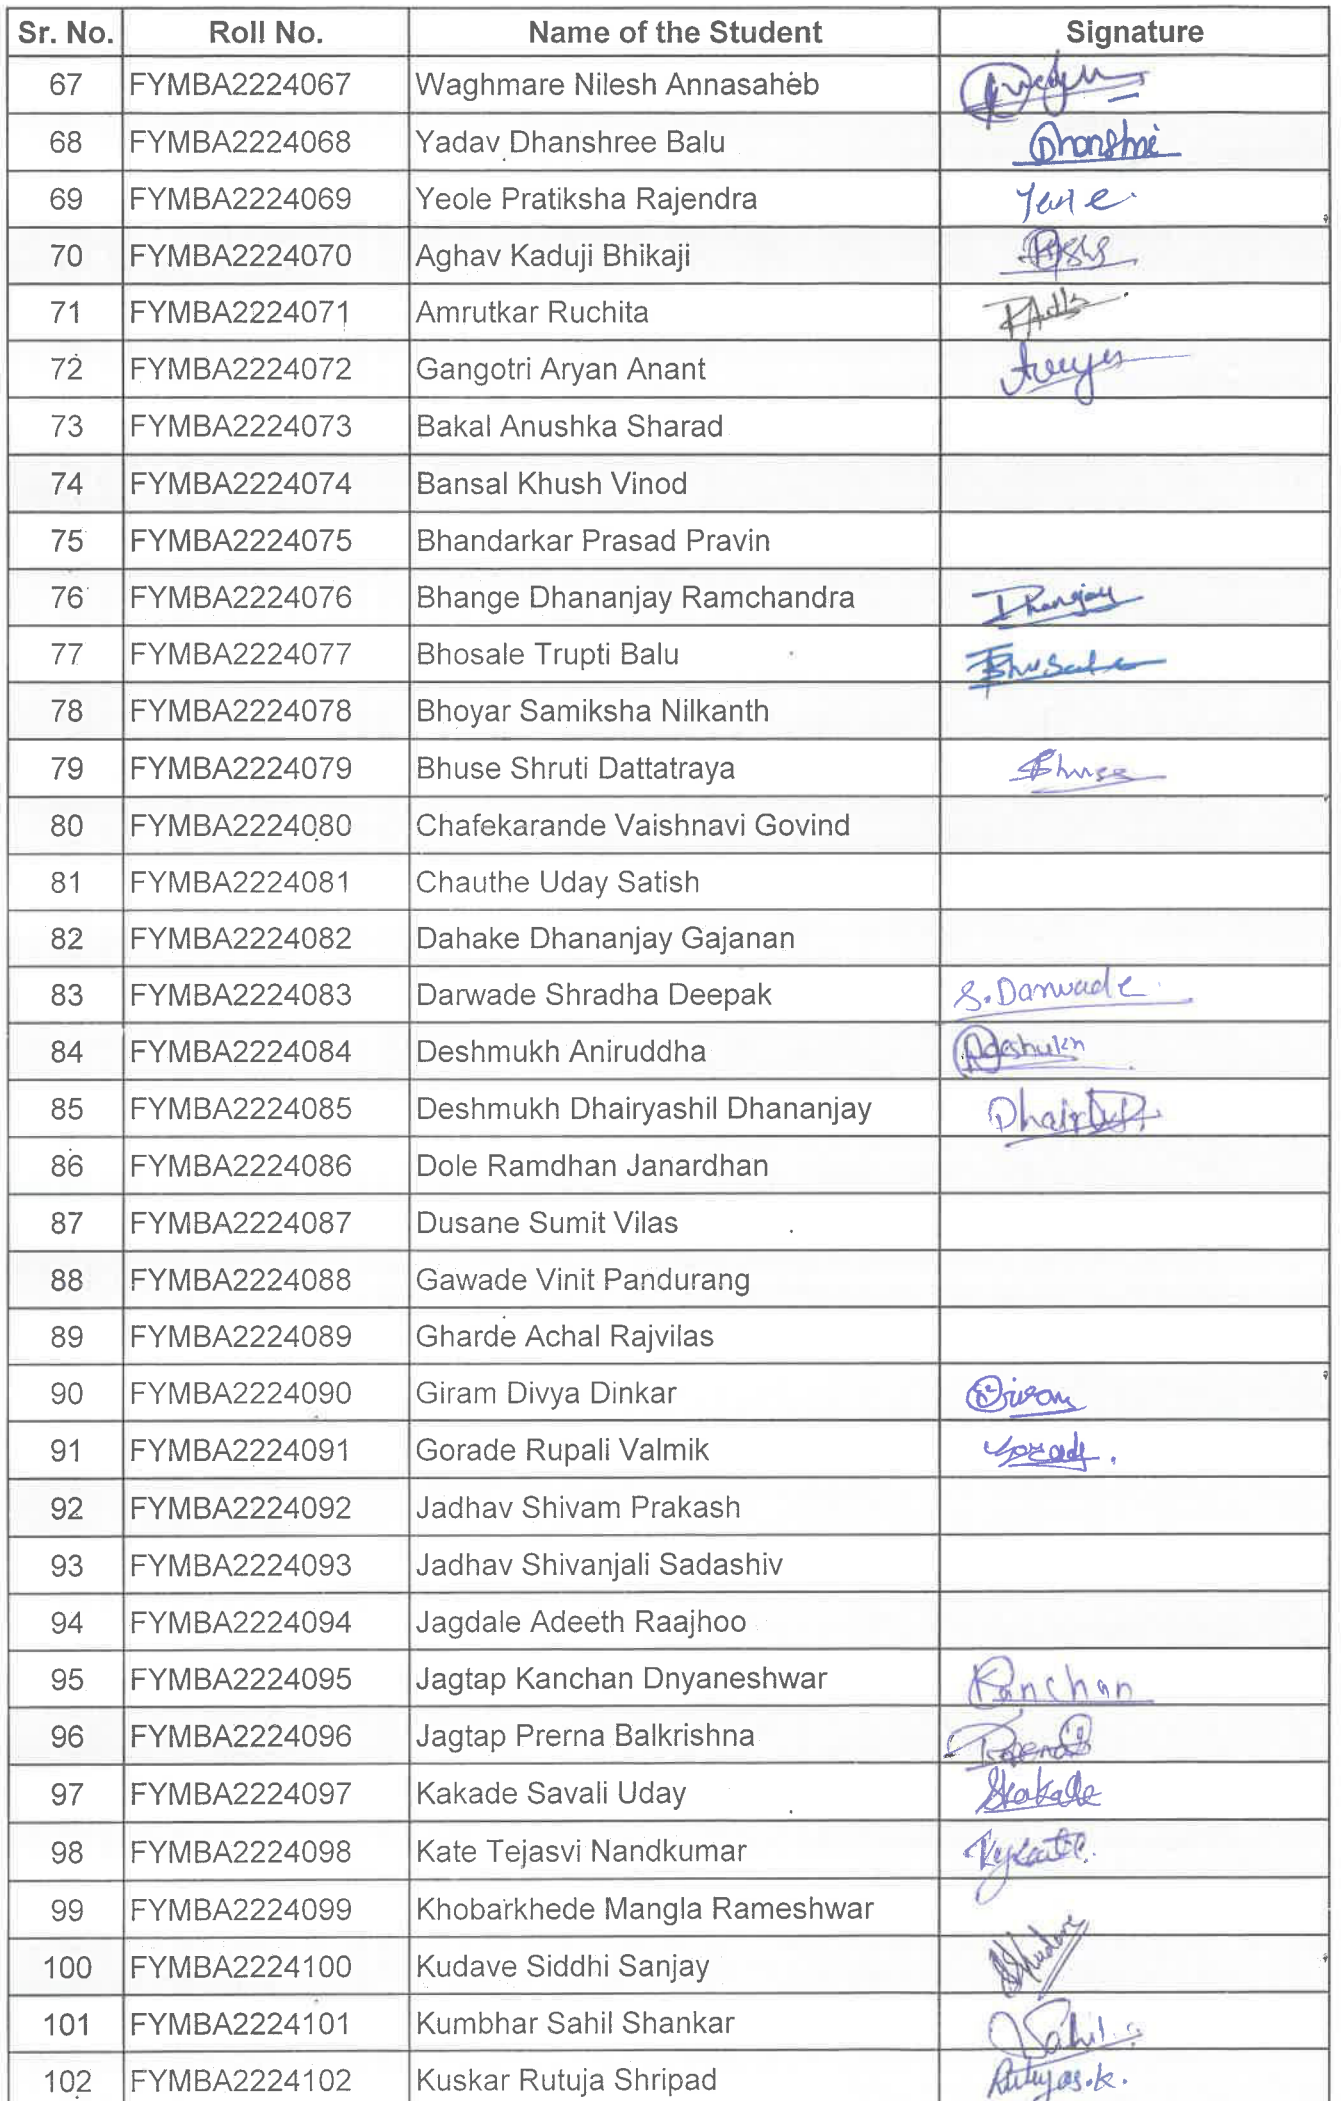 Sr. No. Roll No. Name of the Student Signature
67 FYMBA2224067 Waghmare Nilesh Annasaheb
68 FYMBA2224068 Yadav Dhanshree Balu Dhanshree
69 FYMBA2224069 Yeole Pratiksha Rajendra Yeole
70 FYMBA2224070 Aghav Kaduji Bhikaji
71 FYMBA2224071 Amrutkar Ruchita
72 FYMBA2224072 Gangotri Aryan Anant
73 FYMBA2224073 Bakal Anushka Sharad
74 FYMBA2224074 Bansal Khush Vinod
75 FYMBA2224075 Bhandarkar Prasad Pravin
76 FYMBA2224076 Bhange Dhananjay Ramchandra
77 FYMBA2224077 Bhosale Trupti Balu
78 FYMBA2224078 Bhoyar Samiksha Nilkanth
79 FYMBA2224079 Bhuse Shruti Dattatraya
80 FYMBA2224080 Chafekarande Vaishnavi Govind
81 FYMBA2224081 Chauthe Uday Satish
82 FYMBA2224082 Dahake Dhananjay Gajanan
83 FYMBA2224083 Darwade Shradha Deepak S. Darwade
84 FYMBA2224084 Deshmukh Aniruddha
85 FYMBA2224085 Deshmukh Dhairyashil Dhananjay
86 FYMBA2224086 Dole Ramdhan Janardhan
87 FYMBA2224087 Dusane Sumit Vilas
88 FYMBA2224088 Gawade Vinit Pandurang
89 FYMBA2224089 Gharde Achal Rajvilas
90 FYMBA2224090 Giram Divya Dinkar
91 FYMBA2224091 Gorade Rupali Valmik
92 FYMBA2224092 Jadhav Shivam Prakash
93 FYMBA2224093 Jadhav Shivanjali Sadashiv
94 FYMBA2224094 Jagdale Adeeth Raajhoo
95 FYMBA2224095 Jagtap Kanchan Dnyaneshwar Kanchan
96 FYMBA2224096 Jagtap Prerna Balkrishna
97 FYMBA2224097 Kakade Savali Uday Skakade
98 FYMBA2224098 Kate Tejasvi Nandkumar
99 FYMBA2224099 Khobarkhede Mangla Rameshwar
100 FYMBA2224100 Kudave Siddhi Sanjay
101 FYMBA2224101 Kumbhar Sahil Shankar Sahil
102 FYMBA2224102 Kuskar Rutuja Shripad